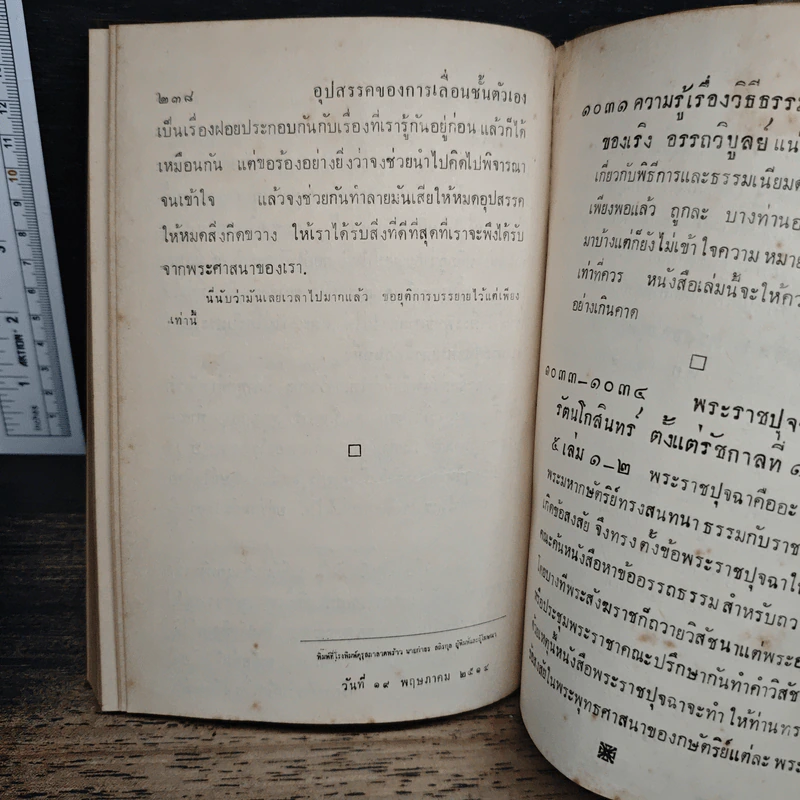 ๒๓๘ อุปสรรคของการเลื่อนชั้นตัวเอง
เป็นเรื่องฝอยประกอบกันกับเรื่องที่เรารู้กันอยู่ก่อน แล้วก็ได้
เหมือนกัน แต่ขอร้องอย่างยิ่งว่าจงช่วยนำไปคิดไปพิจารณา
จนเข้าใจ แล้วจงช่วยกันทำลายมันเสียให้หมดอุปสรรค
ให้หมดสิ่งกีดขวาง ให้เราได้รับสิ่งที่ดีที่สุดที่เราจะพึงได้รับ
จากพระศาสนาของเรา.
นี่นับว่ามันเลยเวลาไปมากแล้ว ขอยุติการบรรยายไว้แต่เพียง
เท่านี้
พิมพ์ที่โรงพิมพ์คุรุสภาลาดพร้าว
วันที่ ๑๙ พฤษภาคม ๒๕๑๔
๑๐๓๑ ความรู้เรื่องวิธีธรรม
ของเริง อรรถวิบูลย์ แน
เกี่ยวกับพิธีการและธรรมเนียม
เพียงพอแล้ว ถูกละ บางท่าน
มาบ้างแต่ก็ยังไม่เข้าใจความหมาย
เท่าที่ควร หนังสือเล่มนี้จะให้
อย่างเกินคาด
๑๐๓๓–๑๐๓๔ พระราชปุจ
รัตนโกสินทร์ ตั้งแต่รัชกาลที่ ๑
๕ เล่ม ๑–๒ พระราชปุจฉาคือ
พระมหากษัตริย์ทรงสนทนาธรรมกับราช
เกิดข้อสงสัย จึงทรงตั้งข้อพระราชปุจฉา
คณะค้นหนังสือหาข้ออรรถธรรม สำหรับถว
โดยบางทีพระสังฆราชก็ถวายวิสัชนาแต่พระ
หรือประชุมพระราชาคณะปรึกษากันทำคำวิสัช
ด้วยเหตุนี้หนังสือพระราชปุจฉาจะทำให้ท่าน
ในพระพุทธศาสนาของกษัตริย์แต่ละ พระ